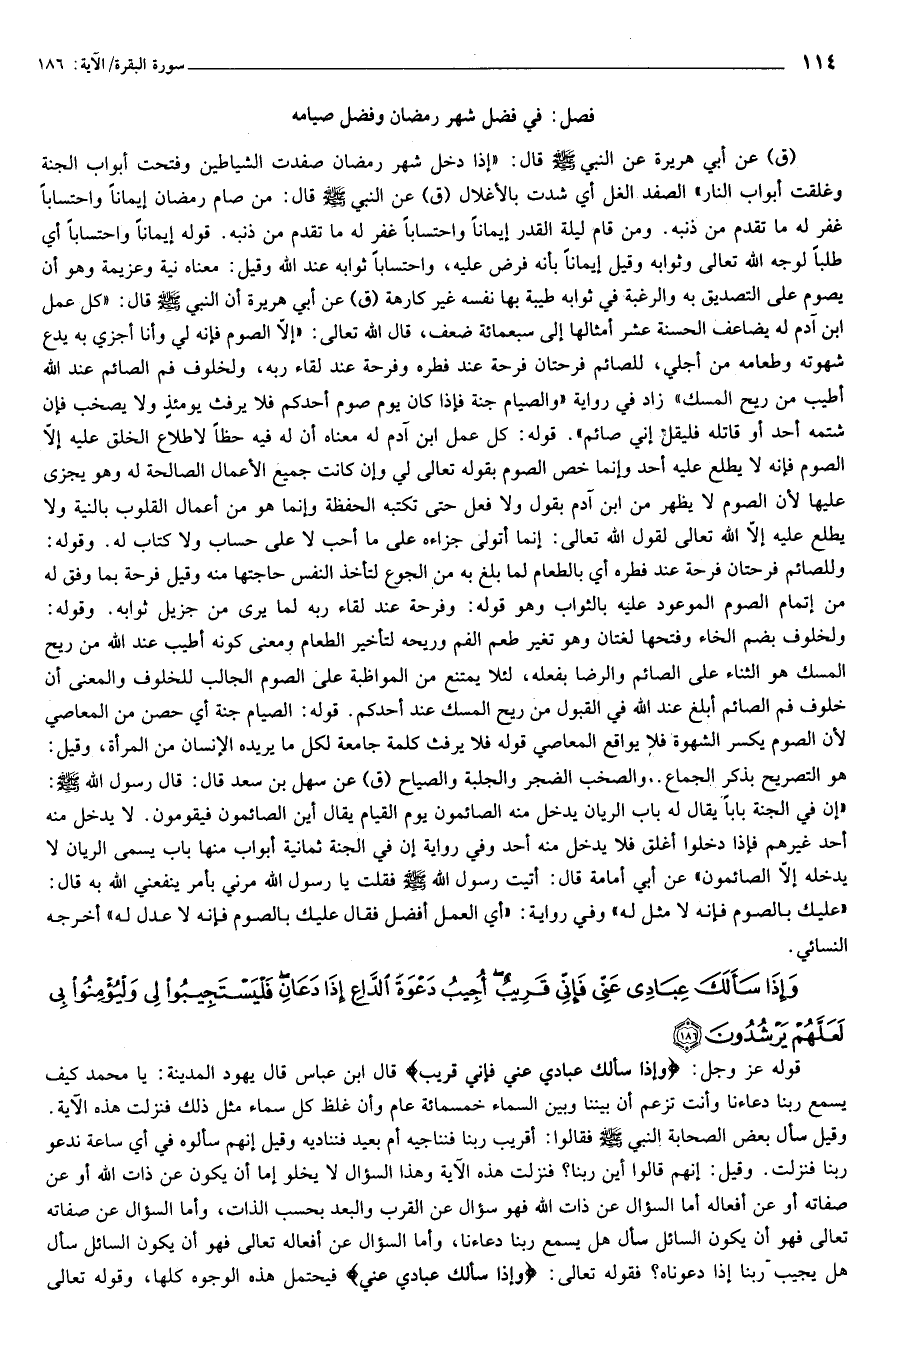 ١١٤ سورة البقرة/ الآية: ١٨٦
فصل: في فضل شهر رمضان وفضل صيامه
(ق) عن أبي هريرة عن النبي ﷺ قال: «إذا دخل شهر رمضان صفدت الشياطين وفتحت أبواب الجنة
وغلقت أبواب النار» الصفد الغل أي شدت بالأغلال (ق) عن النبي ﷺ قال: من صام رمضان إيماناً واحتساباً
غفر له ما تقدم من ذنبه. ومن قام ليلة القدر إيماناً واحتساباً غفر له ما تقدم من ذنبه. قوله إيماناً واحتساباً أي
طلباً لوجه الله تعالى وثوابه وقيل إيماناً بأنه فرض عليه، واحتساباً ثوابه عند الله وقيل: معناه نية وعزيمة وهو أن
يصوم على التصديق به والرغبة في ثوابه طيبة بها نفسه غير كارهة (ق) عن أبي هريرة أن النبي ﷺ قال: «كل عمل
ابن آدم له يضاعف الحسنة عشر أمثالها إلى سبعمائة ضعف، قال الله تعالى: «إلّا الصوم فإنه لي وأنا أجزي به يدع
شهوته وطعامه من أجلي، للصائم فرحتان فرحة عند فطره وفرحة عند لقاء ربه، ولخلوف فم الصائم عند الله
أطيب من ريح المسك» زاد في رواية «والصيام جنة فإذا كان يوم صوم أحدكم فلا يرفث يومئذٍ ولا يصخب فإن
شتمه أحد أو قاتله فليقلْ إني صائم». قوله: كل عمل ابن آدم له معناه أن له فيه حظاً لاطلاع الخلق عليه إلّا
الصوم فإنه لا يطلع عليه أحد وإنما خص الصوم بقوله تعالى لي وإن كانت جميع الأعمال الصالحة له وهو يجزى
عليها لأن الصوم لا يظهر من ابن آدم بقول ولا فعل حتى تكتبه الحفظة وإنما هو من أعمال القلوب بالنية ولا
يطلع عليه إلّا الله تعالى لقول الله تعالى: إنما أتولى جزاءه على ما أحب لا على حساب ولا كتاب له. وقوله:
وللصائم فرحتان فرحة عند فطره أي بالطعام لما بلغ به من الجوع لتأخذ النفس حاجتها منه وقيل فرحة بما وفق له
من إتمام الصوم الموعود عليه بالثواب وهو قوله: وفرحة عند لقاء ربه لما يرى من جزيل ثوابه. وقوله:
ولخلوف بضم الخاء وفتحها لغتان وهو تغير طعم الفم وريحه لتأخير الطعام ومعنى كونه أطيب عند الله من ريح
المسك هو الثناء على الصائم والرضا بفعله، لئلا يمتنع من المواظبة على الصوم الجالب للخلوف والمعنى أن
خلوف فم الصائم أبلغ عند الله في القبول من ريح المسك عند أحدكم. قوله: الصيام جنة أي حصن من المعاصي
لأن الصوم يكسر الشهوة فلا يواقع المعاصي قوله فلا يرفث كلمة جامعة لكل ما يريده الإنسان من المرأة، وقيل:
هو التصريح بذكر الجماع.. والصخب الضجر والجلبة والصياح (ق) عن سهل بن سعد قال: قال رسول الله ﷺ:
«إن في الجنة باباً يقال له باب الريان يدخل منه الصائمون يوم القيام يقال أين الصائمون فيقومون. لا يدخل منه
أحد غيرهم فإذا دخلوا أغلق فلا يدخل منه أحد وفي رواية إن في الجنة ثمانية أبواب منها باب يسمى الريان لا
يدخله إلّا الصائمون» عن أبي أمامة قال: أتيت رسول الله ﷺ فقلت يا رسول الله مرني بأمر ينفعني الله به قال:
«عليك بالصوم فإنه لا مثل له» وفي رواية: «أي العمل أفضل فقال عليك بالصوم فإنه لا عدل له» أخرجه
النسائي.
وَإِذَا سَأَلَكَ عِبَادِى عَنِّى فَإِنِّى قَرِيبٌ أُجِيبُ دَعْوَةَ ٱلدَّاعِ إِذَا دَعَانِ فَلْيَسْتَجِيبُوا۟ لِى وَلْيُؤْمِنُوا۟ بِى
لَعَلَّهُمْ يَرْشُدُونَ ١٨٦
قوله عز وجل: ﴿وإذا سألك عبادي عني فإني قريب﴾ قال ابن عباس قال يهود المدينة: يا محمد كيف
يسمع ربنا دعاءنا وأنت تزعم أن بيننا وبين السماء خمسمائة عام وأن غلظ كل سماء مثل ذلك فنزلت هذه الآية.
وقيل سأل بعض الصحابة النبي ﷺ فقالوا: أقريب ربنا فنناجيه أم بعيد فنناديه وقيل إنهم سألوه في أي ساعة ندعو
ربنا فنزلت. وقيل: إنهم قالوا أين ربنا؟ فنزلت هذه الآية وهذا السؤال لا يخلو إما أن يكون عن ذات الله أو عن
صفاته أو عن أفعاله أما السؤال عن ذات الله فهو سؤال عن القرب والبعد بحسب الذات، وأما السؤال عن صفاته
تعالى فهو أن يكون السائل سأل هل يسمع ربنا دعاءنا، وأما السؤال عن أفعاله تعالى فهو أن يكون السائل سأل
هل يجيب ربنا إذا دعوناه؟ فقوله تعالى: ﴿وإذا سألك عبادي عني﴾ فيحتمل هذه الوجوه كلها، وقوله تعالى